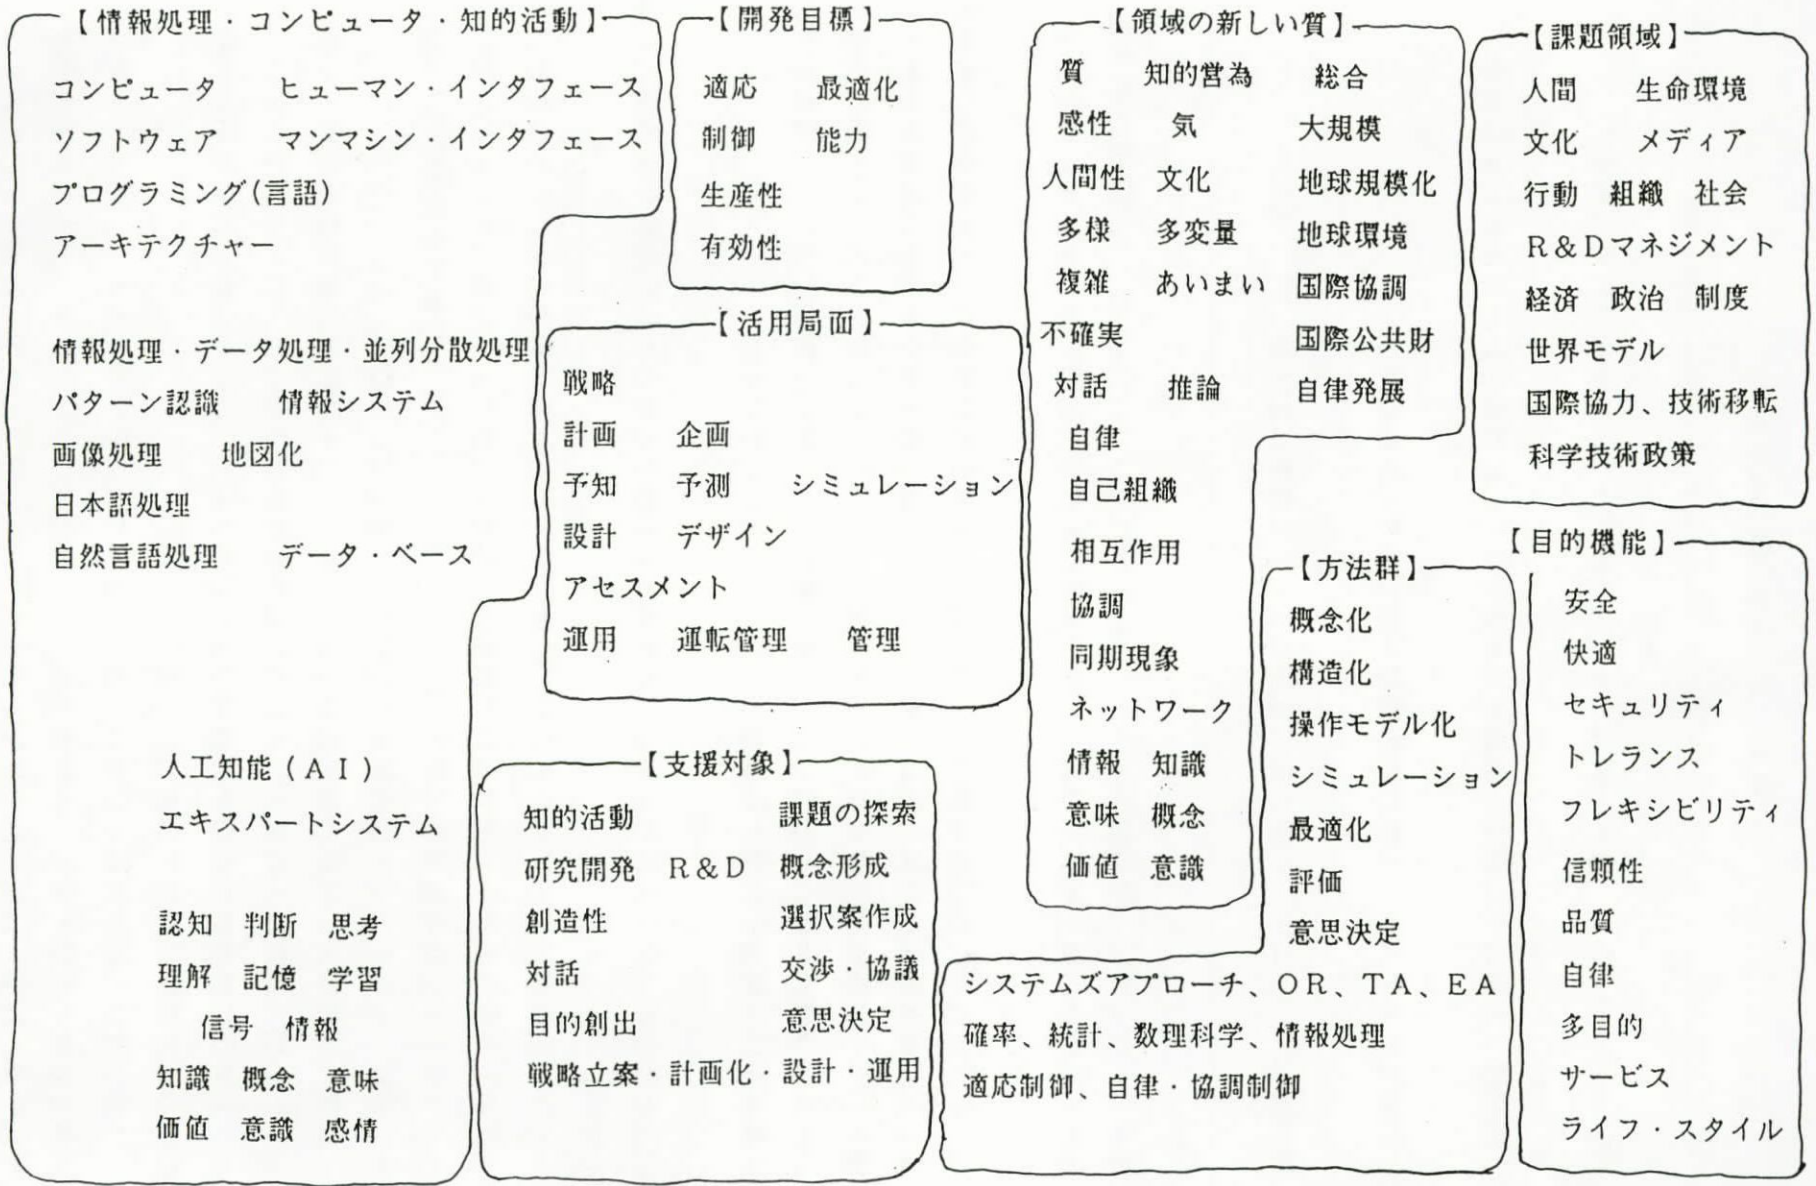 【情報処理・コンピュータ・知的活動】
コンピュータ　ヒューマン・インタフェース
ソフトウェア　マンマシン・インタフェース
プログラミング(言語)
アーキテクチャー
情報処理・データ処理・並列分散処理
パターン認識　情報システム
画像処理　地図化
日本語処理
自然言語処理　データ・ベース
人工知能(AI)
エキスパートシステム
認知　判断　思考
理解　記憶　学習
信号　情報
知識　概念　意味
価値　意識　感情
【開発目標】
適応　最適化
制御　能力
生産性
有効性
【活用局面】
戦略
計画　企画
予知　予測　シミュレーション
設計　デザイン
アセスメント
運用　運転管理　管理
【支援対象】
知的活動　課題の探索
研究開発　R&D　概念形成
創造性　選択案作成
対話　交渉・協議
目的創出　意思決定
戦略立案・計画化・設計・運用
【領域の新しい質】
質　知的営為　総合
感性　気　大規模
人間性　文化　地球規模化
多様　多変量　地球環境
複雑　あいまい　国際協調
不確実　国際公共財
対話　推論　自律発展
自律
自己組織
相互作用
協調
同期現象
ネットワーク
情報　知識
意味　概念
価値　意識
【方法群】
概念化
構造化
操作モデル化
シミュレーション
最適化
評価
意思決定
システムズアプローチ、OR、TA、EA
確率、統計、数理科学、情報処理
適応制御、自律・協調制御
【課題領域】
人間　生命環境
文化　メディア
行動　組織　社会
R&Dマネジメント
経済　政治　制度
世界モデル
国際協力、技術移転
科学技術政策
【目的機能】
安全
快適
セキュリティ
トレランス
フレキシビリティ
信頼性
品質
自律
多目的
サービス
ライフ・スタイル